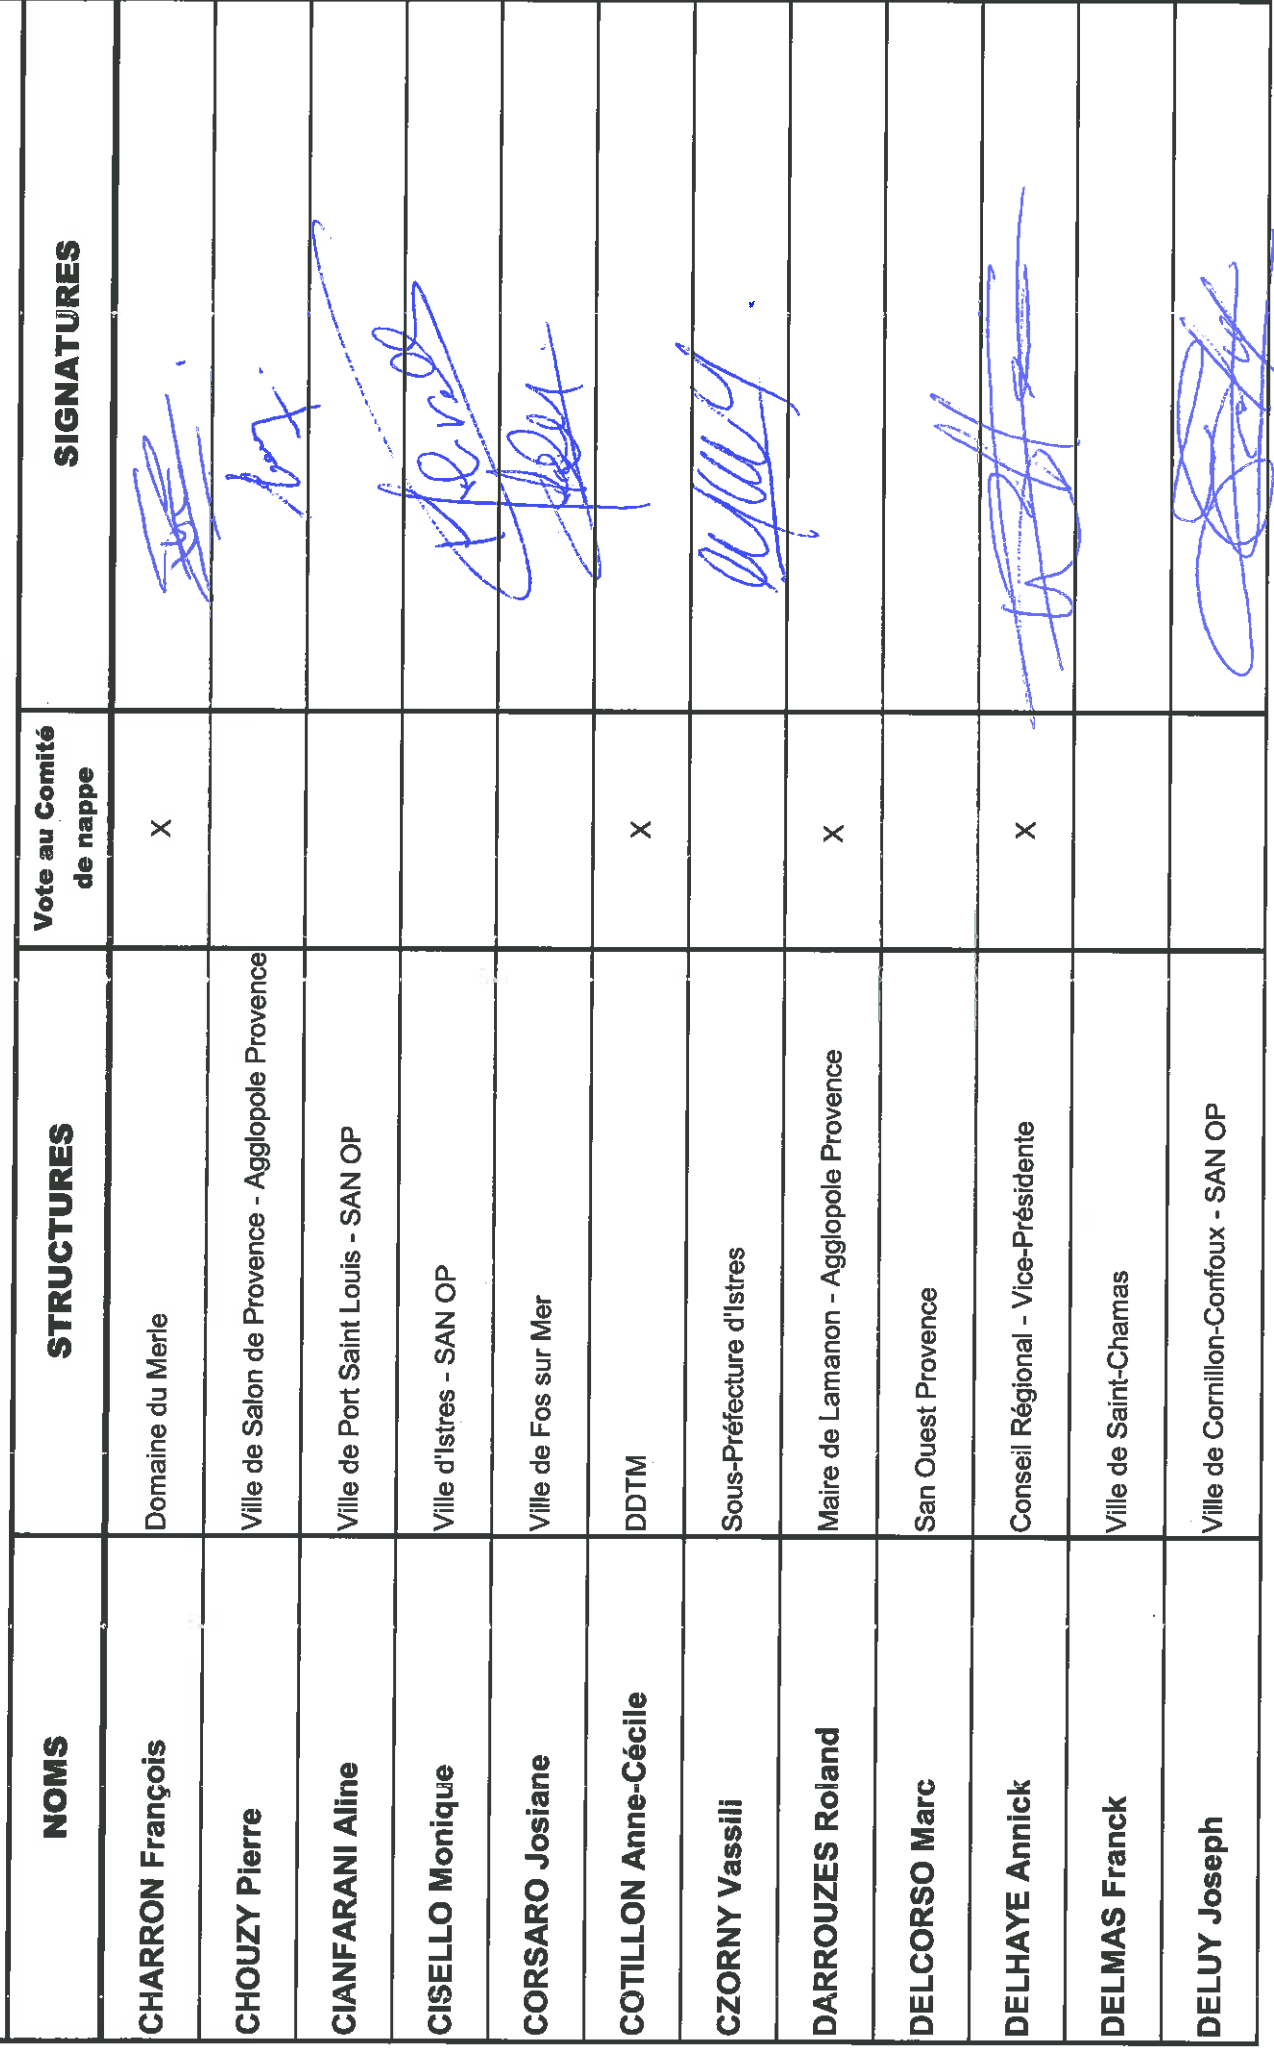 NOMS STRUCTURES Vote au Comité de nappe SIGNATURES
CHARRON François Domaine du Merle X
CHOUZY Pierre Ville de Salon de Provence - Agglopole Provence
CIANFARANI Aline Ville de Port Saint Louis - SAN OP
CISELLO Monique Ville d'Istres - SAN OP
CORSARO Josiane Ville de Fos sur Mer
COTILLON Anne-Cécile DDTM X
CZORNY Vassili Sous-Préfecture d'Istres
DARROUZES Roland Maire de Lamanon - Agglopole Provence X
DELCORSO Marc San Ouest Provence
DELHAYE Annick Conseil Régional - Vice-Présidente X
DELMAS Franck Ville de Saint-Chamas
DELUY Joseph Ville de Cornillon-Confoux - SAN OP